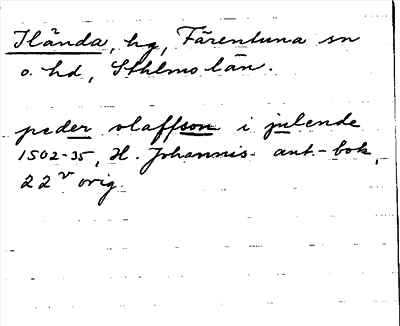 Ilända, hg, Färentuna sn
o. hd, Sthlms län.
peder olaffson i julende
1502-35, H. Johannis- ant.-bok,
22v orig.